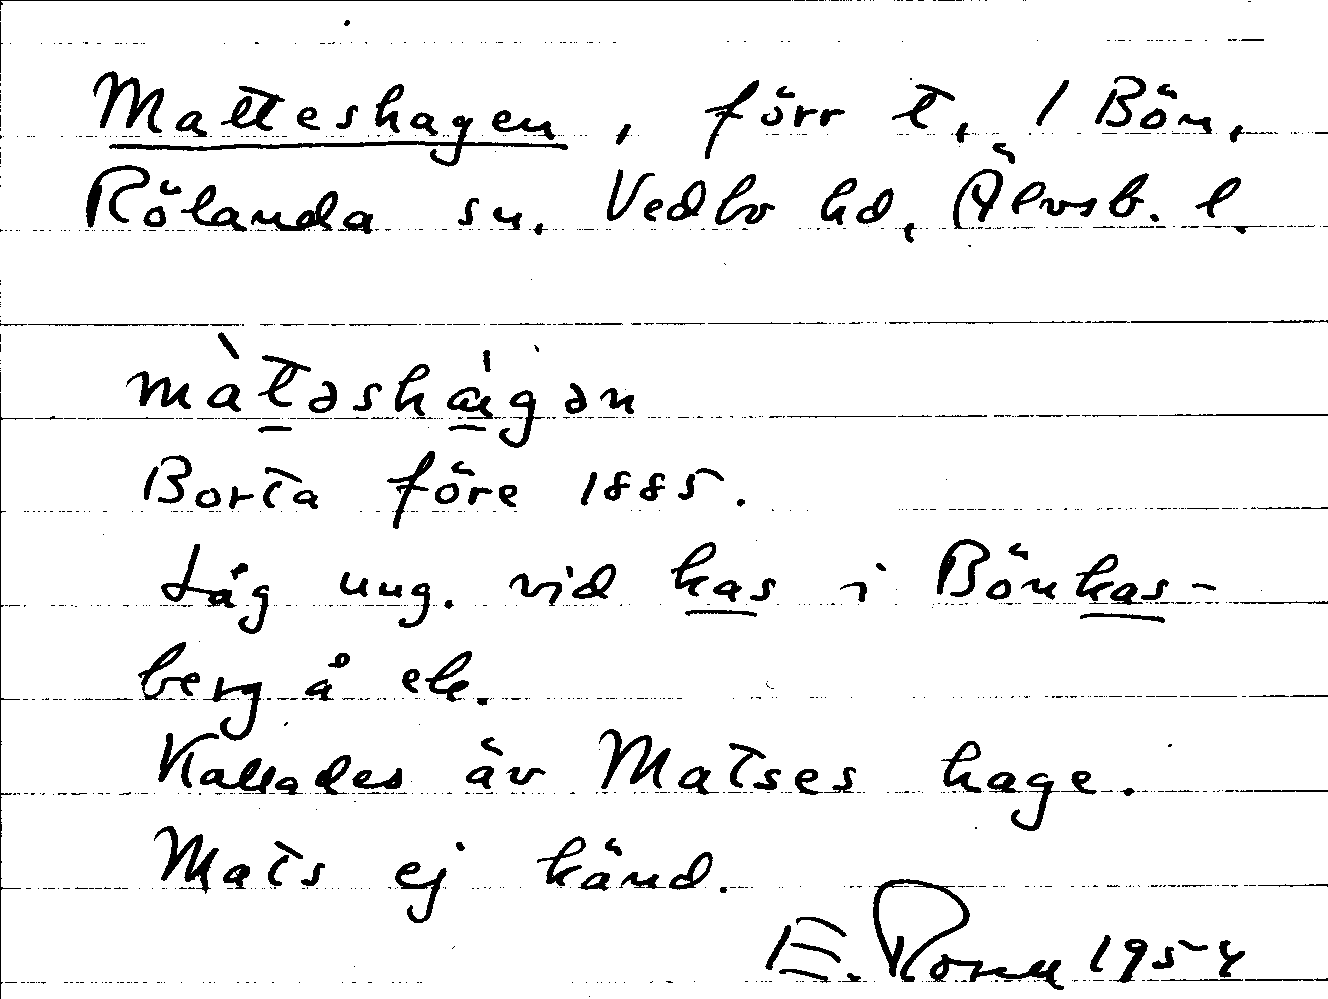 Matteshagen, förr t, 1 Bön,
Rölanda sn, Vedbo hd, Älvsb. l.
màtəshágən
Borta före 1885.
Låg ung. vid kas i Bönkas-
berg å ek.
Kallades äv Matses hage.
Mats ej känd.
E. 1954